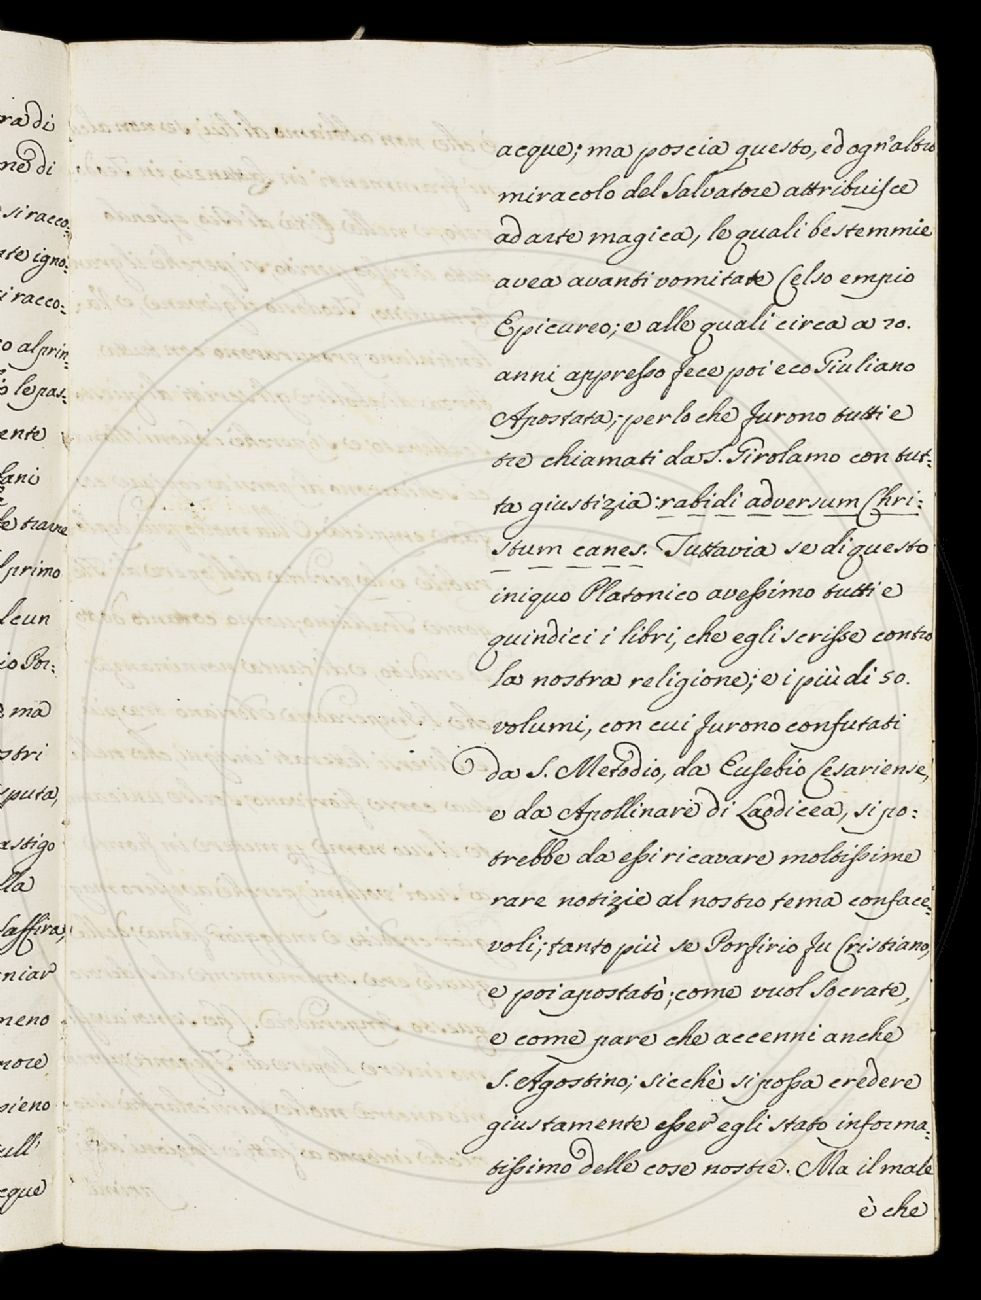 ra di
ne di
si racco:
te igno:
i racco:
o al prin:
io le pas:
ente
lani
le trarre
l primo
lcun
io Por:
ma
stri
sputa,
astigo
lla
Saffira,
niar
meno
more
pieno
sull'
cque
acque; ma poscia questo, ed ogn'altro
miracolo del Salvatore attribuisce
ad arte magica, le quali bestemmie
avea avanti vomitate Celso empio
Epicureo; e alle quali circa a 70.
anni appresso fece poi eco Giuliano
Apostata; per lo che furono tutti e
tre chiamati da S. Girolamo con tut:
ta giustizia: rabidi adversum Chri:
stum canes. Tuttavia se di questo
iniquo Platonico avessimo tutti e
quindici i libri, che egli scrisse contro
la nostra religione; e i più di 50.
volumi, con cui furono confutati
da S. Metodio, da Eusebio Cesariense,
e da Apollinare di Laodicea, si po:
trebbe da essi ricavare moltissime
rare notizie al nostro tema conface:
voli; tanto più se Porfirio fu Cristiano,
e poi apostatò; come vuol Socrate,
e come pare che accenni anche
S. Agostino; sicchè si possa credere
giustamente esser egli stato informa:
tissimo delle cose nostre. Ma il male
è che